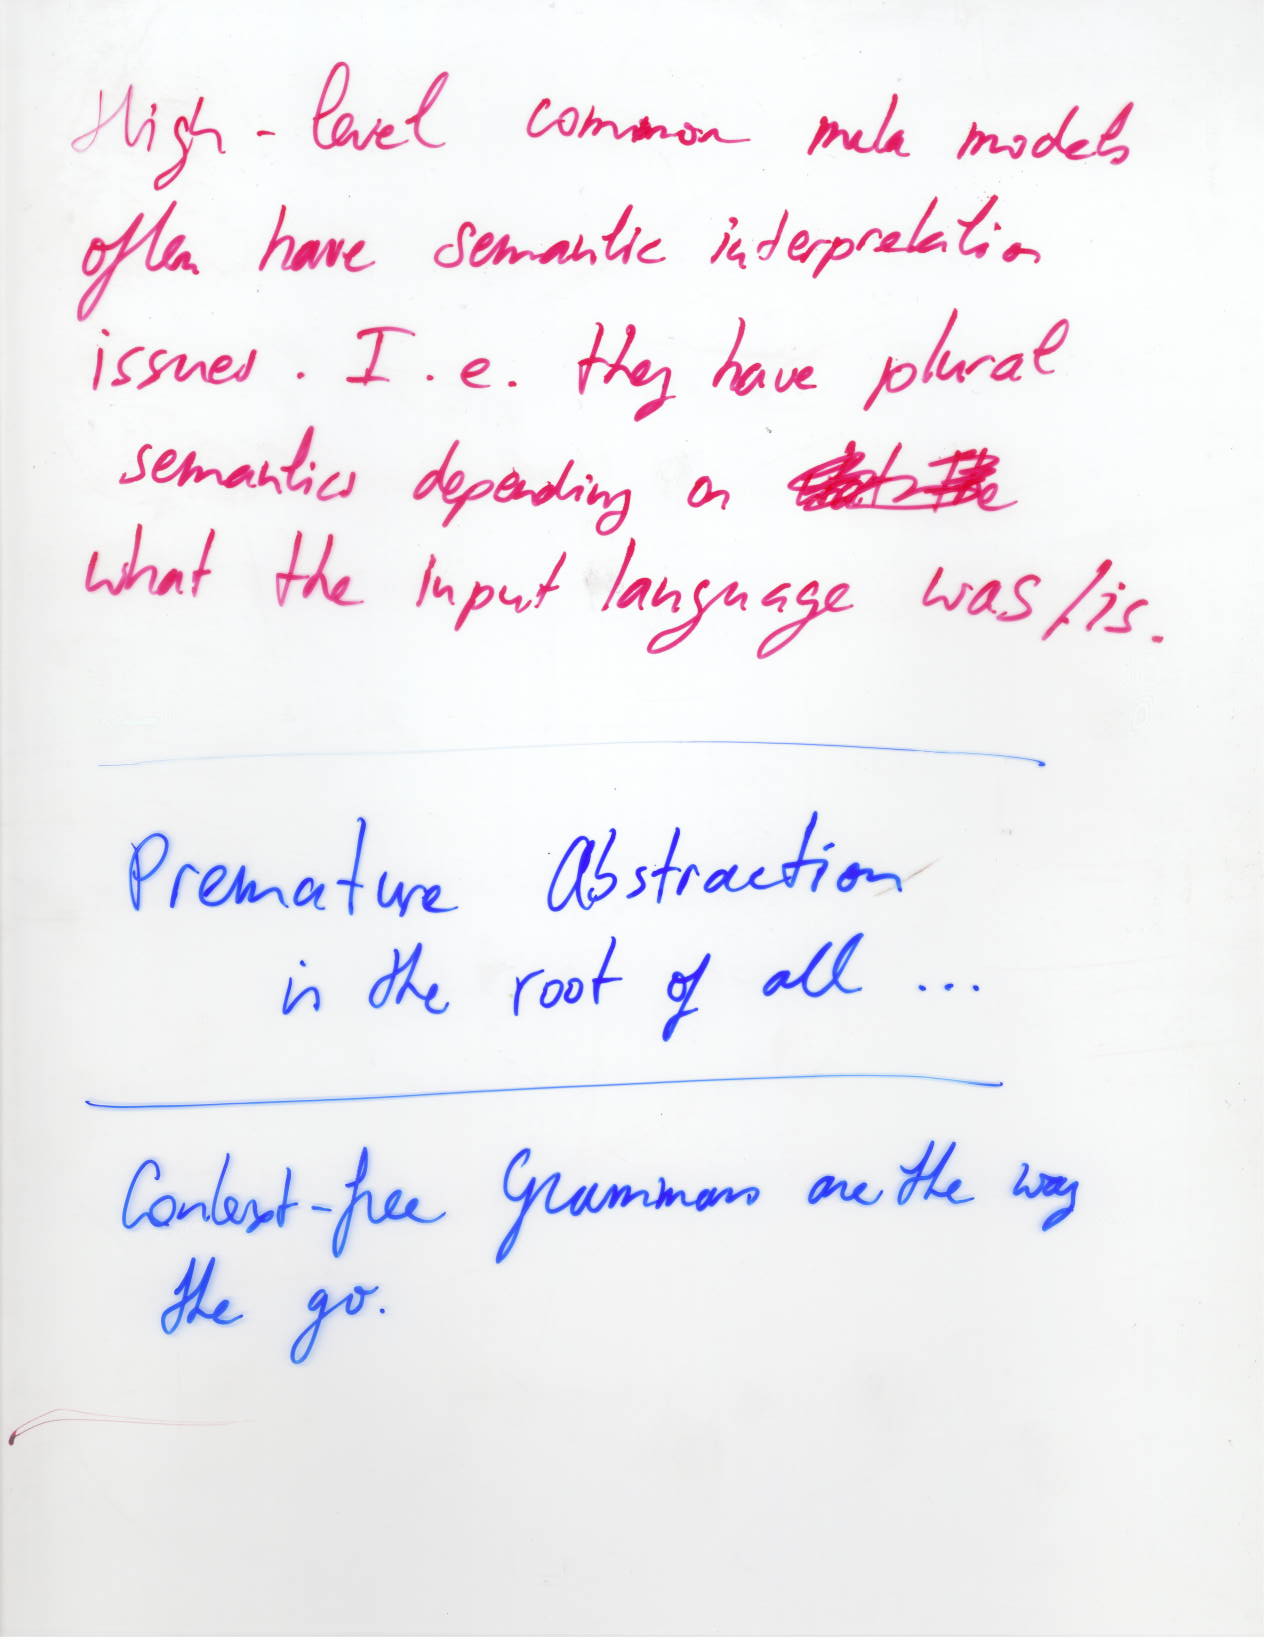 High-level common meta models
often have semantic interpretation
issues. I.e. they have plural
semantics depending on
what the input language was/is.
Premature Abstraction
is the root of all ...
Context-free Grammars are the way
the go.